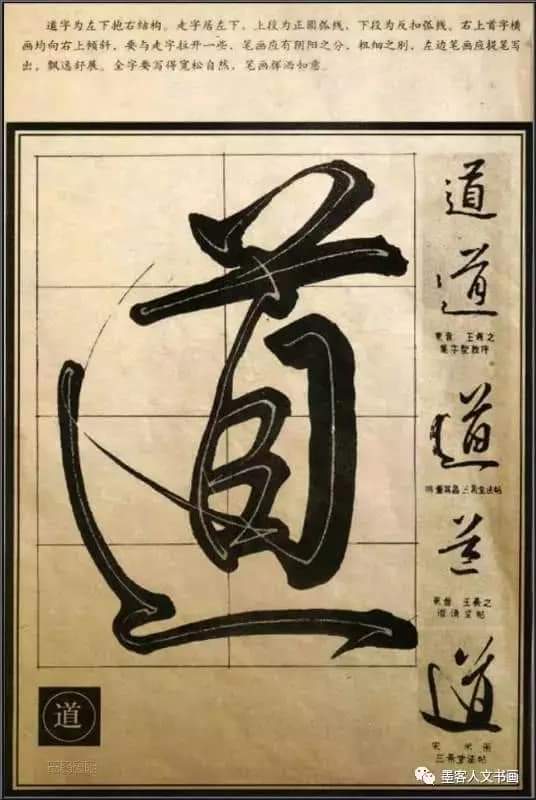 道字为左下抱右结构。走字居左下，上段为正圆弧线，下段为反扣弧线。右上首字横
画均向右上倾斜，要与走字拉开一些，笔画应有阴阳之分，粗细之别，左边笔画应提笔写
出，飘逸舒展。全字要写得宽松自然，笔画挥洒如意。
道
道
道
东晋 王羲之
集字圣教序
道
明 董其昌 三希堂法帖
道
东晋 王羲之
澄清堂帖
道
宋 米芾
三希堂法帖
道
墨客人文书画